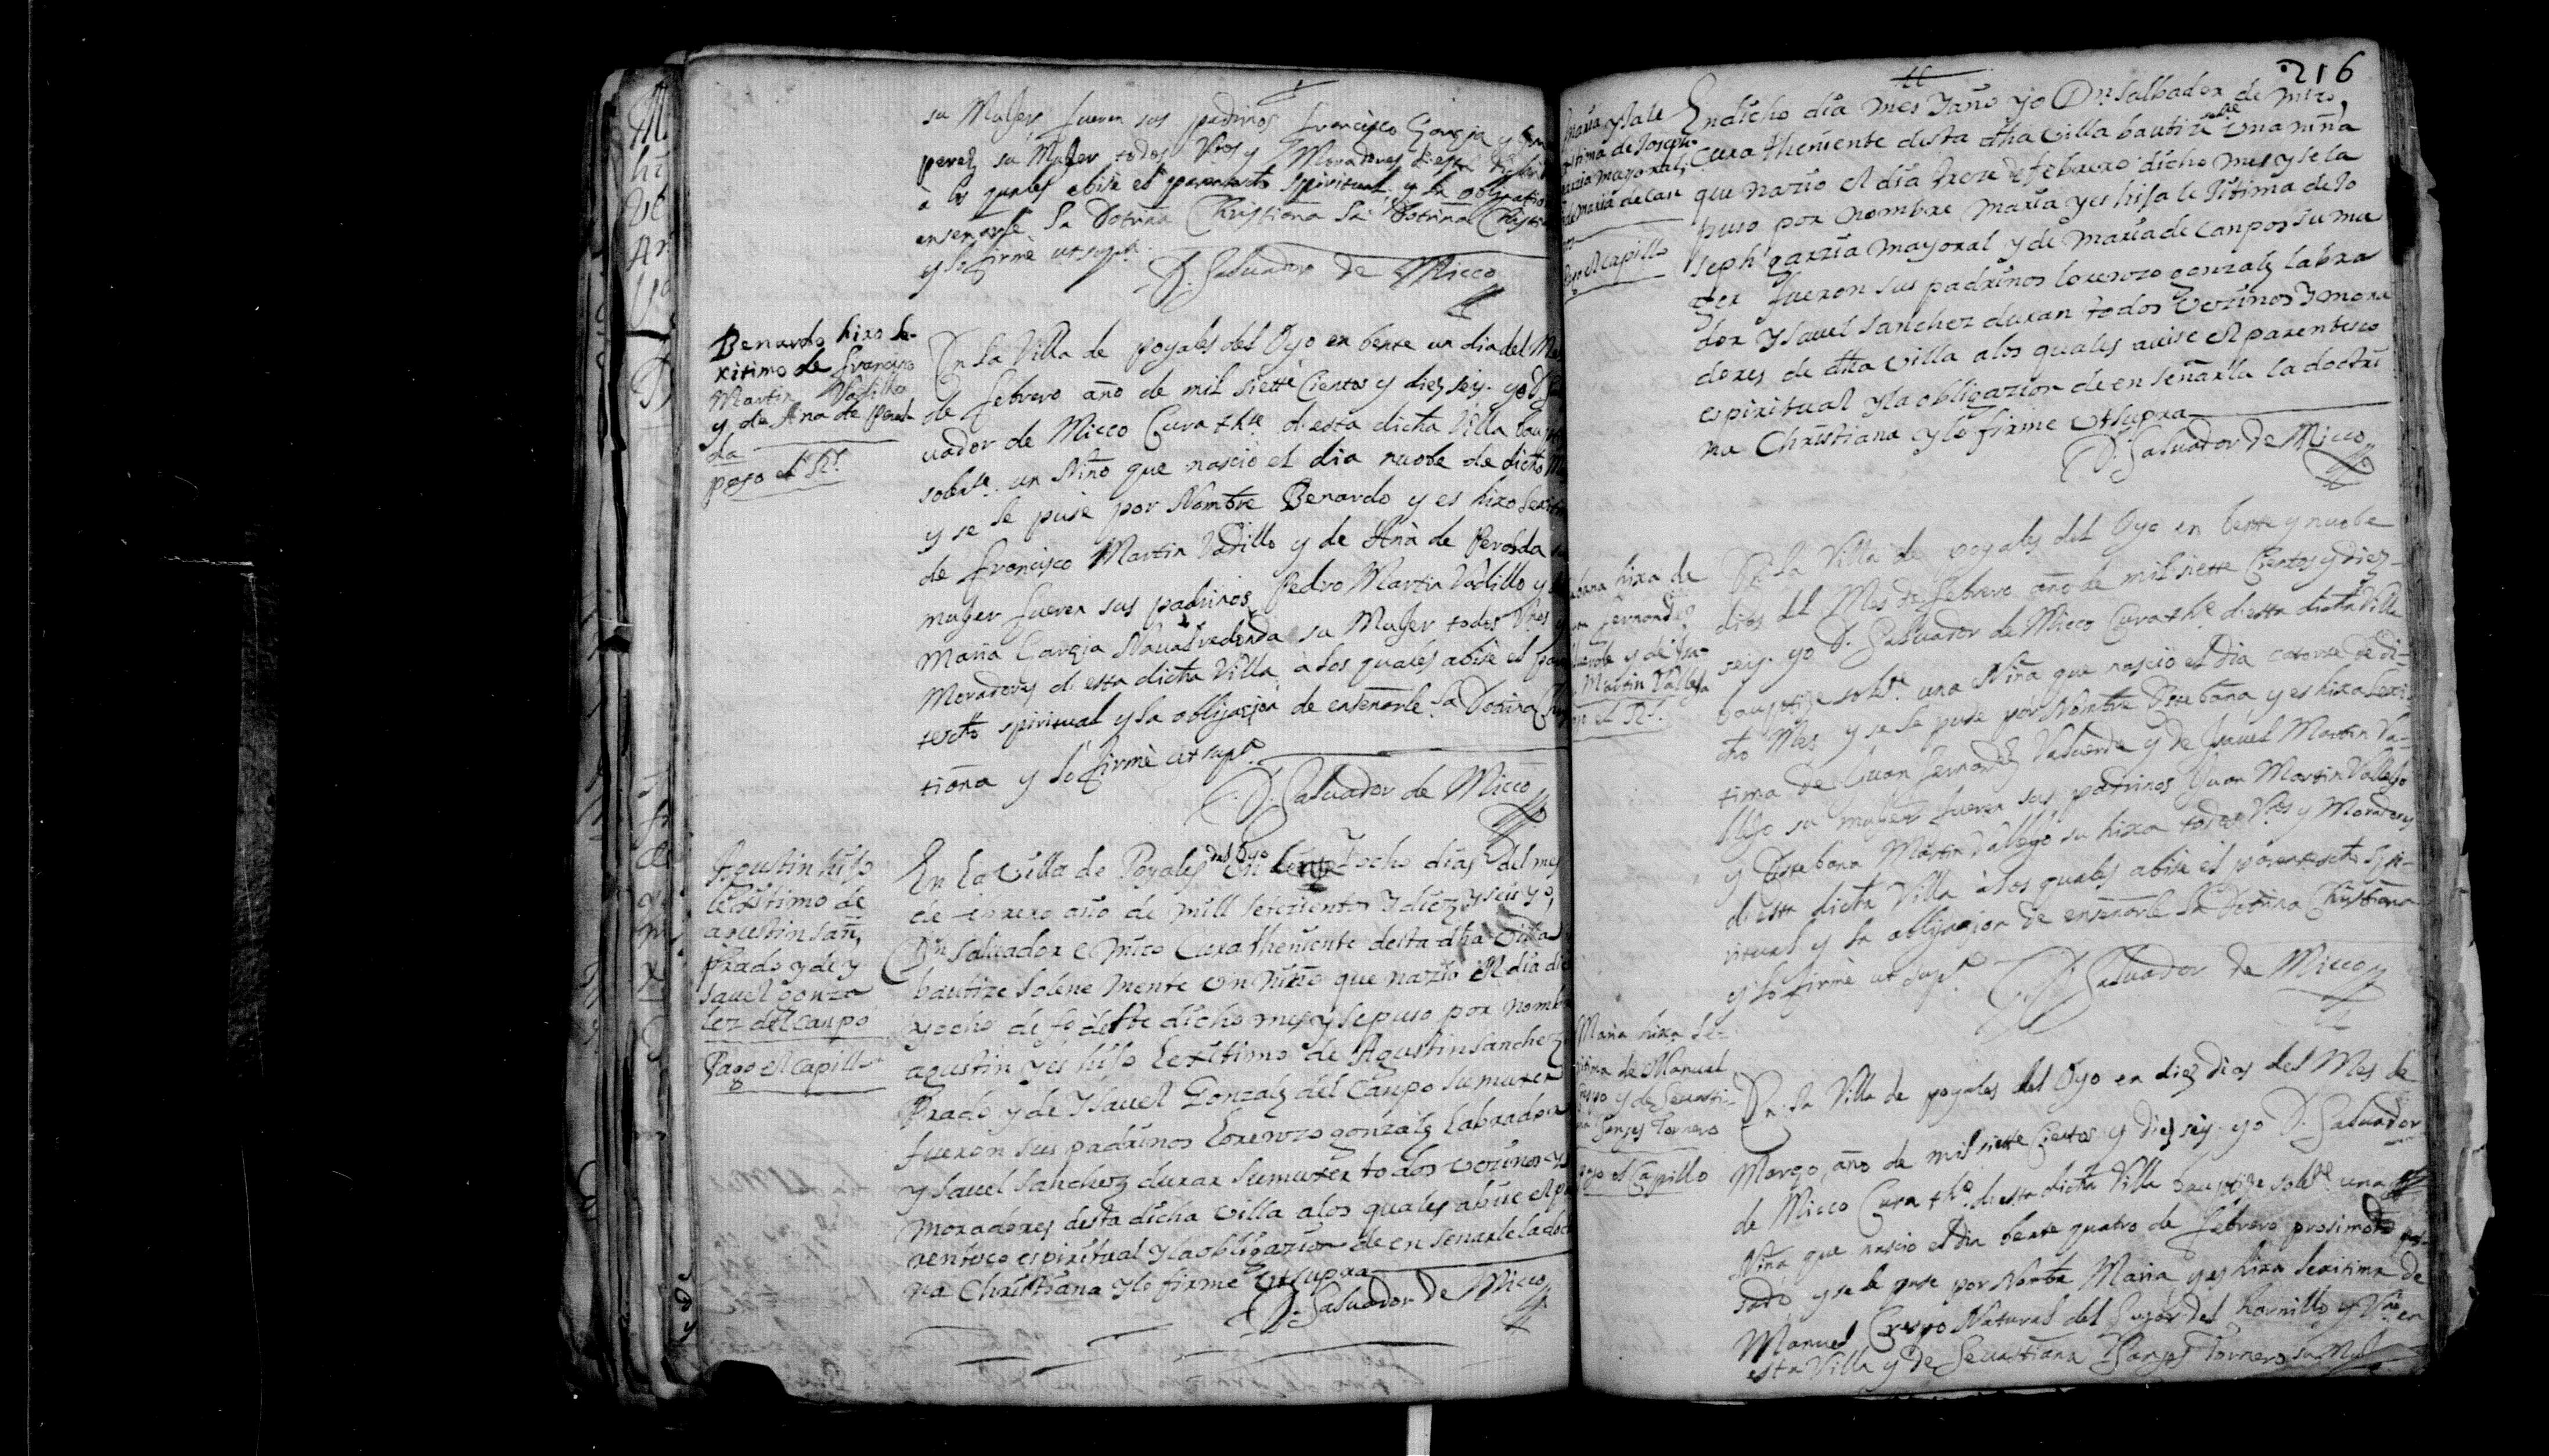 su Mujer fueron sus padrinos francisco Garçia y
perez su Mujer todos Vºs y Moradores diesta dicha
à los quales abisè el parentesto spiritual y la obligatio
enseñarle la Dotrina Christiana la Dotrina Christi
y lo firmè ut supª.
D. Saluador de Micco
Benardo hixo le-
xitimo de francisco
Martin Vadillo
y de Ana de Peral-
da
pago el Rl.
En la Villa de poyales del Oyo en bente un dia del Mes
de febrero año de mil siette Cientos y diez seis. yo D. Sal
uador de Micco Cura thte. diesta dicha Villa baup
solente. un Niño que nascio el dia nuobe de dicho M
y se le puse por Nombre Benardo y es hixo lexitim
de francisco Martin Vadillo y de Ana de Peralda su
mujer fueron sus padrinos Pedro Martin Vadillo y
Maria Garçia Naualredonda su Mujer todos Vºs y
Moradores di esta dicha Villa à los quales abisè el paren
tescto spiritual y la obligaçion de enseñarle la Dotrina Chris
tiana y lo firmè ut supª.
D. Saluador de Micco
Agustin hijo
lexitimo de
agustin san,
Prado y de y
sauel gonza
lez del canpo
Pago el capillo
En la Villa de Poyales del Oyo en bente y ocho dias del mes
de febrero año de mill setezientos y diez y seis yo,
Dn saluador e mico Cura theniente desta dha Villa
bautize solene mente un niño que nazio el dia die
zyocho de fe deste dicho mes y se puso por nombre
agustin y es hijo lexitimo de Agustin sanchez
Prado y de Ysauel Gonzalz del Canpo su muxer
fueron sus padrinos Lorenzo gonzalz labrador
y sauel sanchez duran su muxer todos vezinos y
moradores desta dicha villa alos quales abise el pa
rentesco espiritual y la obligazion de en señarle la doc
na Christiana y lo firme ut supra
D. Saluador de Micco
216
maria y sale
xitima de Joseph
garzia mayoral,
y de maria de can
pos
Pago el capillo
En dicho dia mes y año yo Dn salbador de mico,
Cura theniente desta dha villa bautize sole una niña
que nazio el dia treze de febrero dicho mes y se la
puso por nombre maria y es hija lexitima de Jo
seph garzia mayoral y de maria de canpos su mu
ger fueron sus padrinos lorenzo gonzalz labra
dor Ysauel sanchez duran todos vezinos y mora
dores de dha villa alos quales avise el parentesco
espiritual y la obligazion de en señarla la doctri
na Christiana y lo firme ut supra
D. Saluador de Micco
hixa de
fernandez
Valuerde y de Isa-
Martin Vallejo
el Rl.
En la Villa de poyales del Oyo en bente y nuobe
dias del Mes de febrero año de mil siette Cientos y diez-
seis. yo D. Saluador de Micco Cura thte. diesta dicha Villa
bauptize solente. una Niña que nascio el dia catorze de di-
cho Mes y se le puse por Nombre Estebana y es hixa lexi-
tima de Juan fernandz Valuerde y de Isauel Martin Va-
llejo su mujer fueron sus padrinos Juan Martin Vallejo
y Estebana Martin Vallejo su hixa todos Vºs y Moradores
diesta dicha Villa à los quales abise el parentescto spi-
ritual y la obligaçion de enseñarle la Dotrina Christiana
y lo firmè ut supª.
D. Saluador de Micco
Maria hixa le-
xitima de Manuel
Crespo y de Seuasti-
ana Sanges Tornero
pago el Capillo
En la Villa de poyales del Oyo en diez dias del Mes de
Março año de mil siette Cientos y diez seis. yo D. Saluador
de Micco Cura thte. diesta dicha Villa bauptize solente. una
Niña que nascio el dia bente quatro de febrero prosimo pas-
sado y se le puse por Nombre Maria y es hixa lexitima de
Manuel Crespo Natural del Lugar del hornillo y Vºen
esta Villa y de Seuastiana Sanges Tornero su Mujer